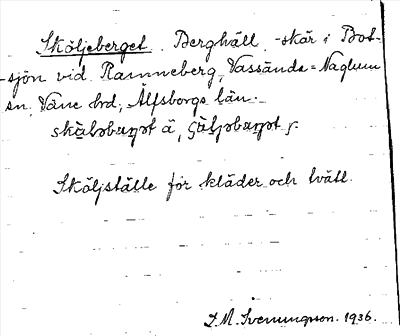 Sköljeberget. Berghäll, -skär i Bot-
sjön vid Ramneberg, Vassända=Naglum
sn, Väne hrd, Älfsborgs län.
Sköljställe för kläder och tvätt.
I. M. Svenungson. 1936.